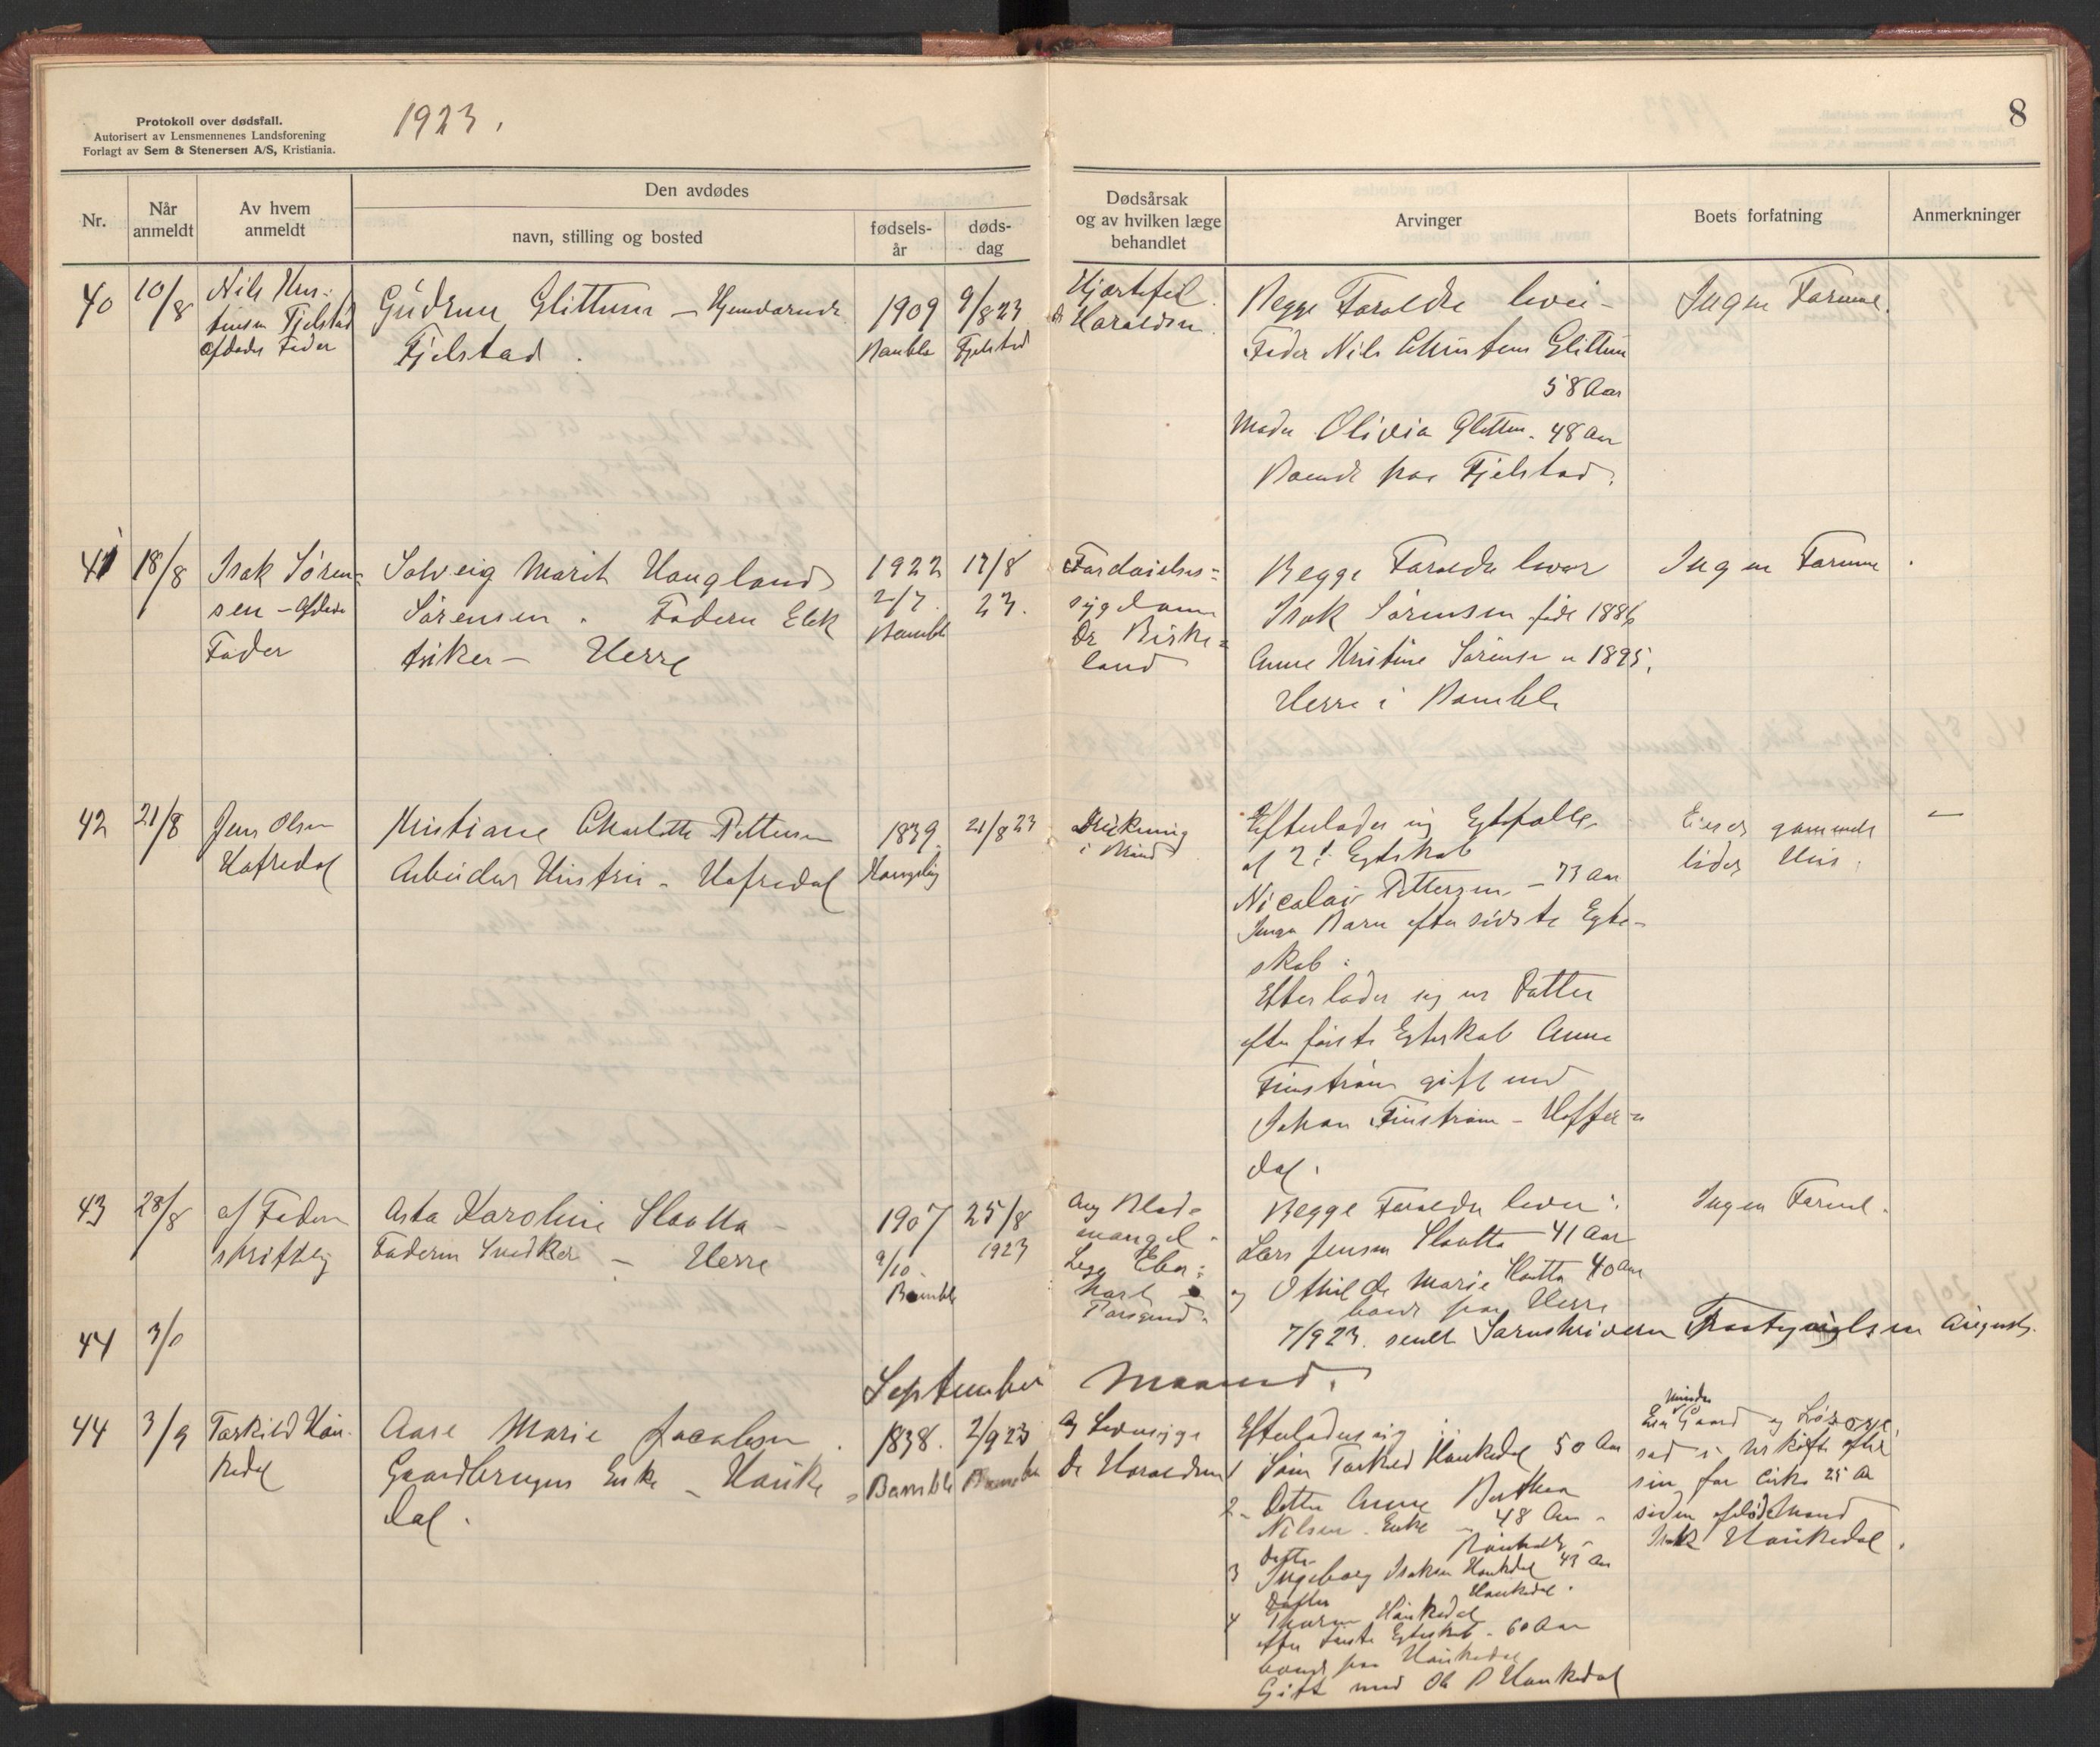 Protokoll over dødsfall.
Autorisert av Lensmennenes Landsforening
Forlagt av Sem & Stenersen A/S, Kristiania.
1923.
8
Nr.
Når anmeldt
Av hvem anmeldt
Den avdødes
navn, stilling og bosted
fødsels-år
døds-dag
Dødsårsak og av hvilken læge behandlet
Arvinger
Boets forfatning
Anmerkninger
40
10/8
Nils Kris-
tensen Fjelstad
Afdødes Fader
Gudrun Glittum – Hjemværende
Fjelstad.
1909
Bamble
9/8 23
Fjelstad
Hjertefeil.
Dr Haraldsen
Begge Foreldre lever –
Fader Nils Christens Glittum
58 Aar
Moder Olivia Glittum. 48 Aar
Boende paa Fjelstad.
Ingen Formue.
41
18/8
Isak Søren-
sen – Afdøde
Fader
Solveig Marit Haugland
Sørensen. Faderen Elek
triker – Herre
1922
2/7.
Bamble
17/8
23.
Fordøielses-
sygdom
Dr Birke-
land
Begge Foreldre lever
Isak Sørensen født 1886
Anne Kristine Sørensen " 1895.
Herre i Bamble
Ingen Formue.
42
21/8
Jens Olsen
Hafredal
Kristiane Charlotte Pettersen
Arbeider Hustru – Hafredal
1839.
21/8 23
i
Efterlader sig Egtefælle
af 2d Egteskab
Nicolai Pettersen – 73 Aar
Ingen Barn efter sidste Egte-
skab.
Efterlader sig en Datter
efter første Egteskab Anne
Finstrøm gift med
Johan Finstrøm – Haffer-
dal.
Eier et gammelt
lidet Hus.
—
43
28/8
af Faderen
skriftlig
Asta Karoline Slaatta –
Faderen Snedker – Herre
1907
9/10.
Bamble
25/8
1923
Blod-
mangel.
Porsgrund.
Begge Foreldre lever.
Lars Jensen Slaatta 41 Aar
og Othilde Marie Slaatta 40 Aar
boende paa Herre
Ingen Formue.
44
3/0
7/9 23. sendt Sorenskriveren August.
September Maaned.
44
3/9
Torkild Hau-
kedal
Aase Marie Jacobsen.
Gaardbrugers Enke – Hauke-
dal.
1838.
Bamble
2/9 23
Bamble
Dr Haraldsen
Efterlader sig
1 Søn Torkild Haukedal 50 Aar
2 – Datter Anne Berthea
Nilsen. Enke – 48 Aar –
3 Datter
Ingeborg Isaksen Haukedal 43 Aar
Haukedal.
4 Datter
Haukedal
efter første Egteskab – 60 Aar
boende paa Haukedal
Gift med Ole P Haukedal
mindre
Eier Gaard og Løsøre,
sad i uskifte efter
sin for cirka 25 Aar
siden afdøde Mand
Isak Haukedal.